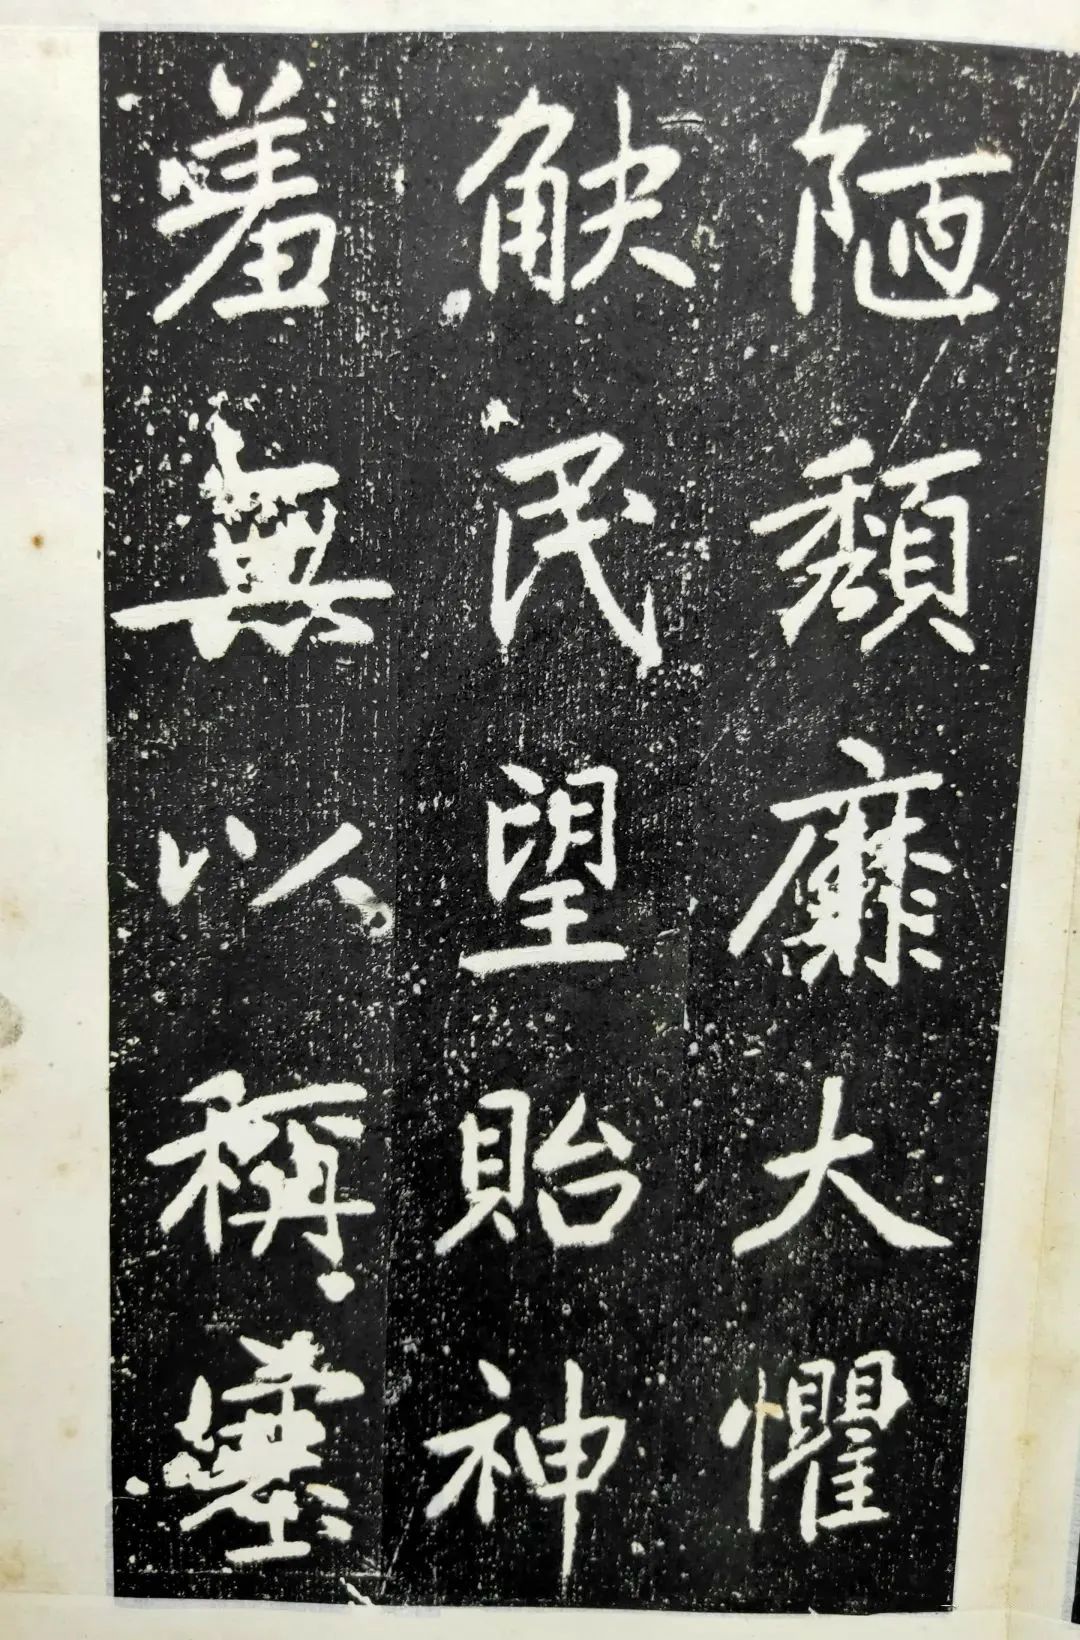 陋頽靡大懼
觖民望貽神
羞無以稱塞